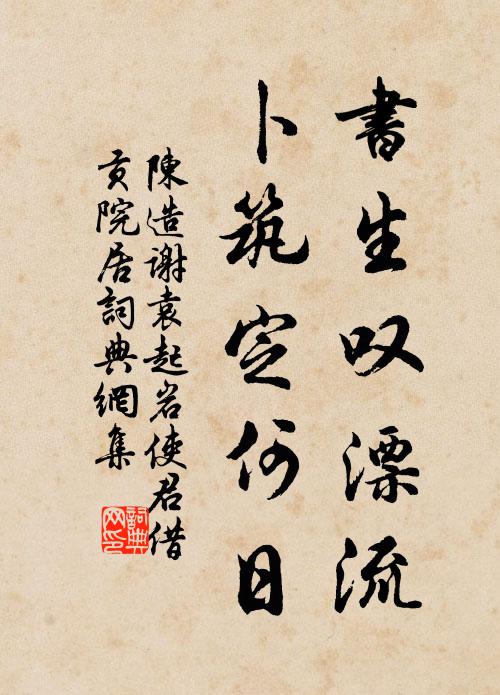 書生叹漂流
卜筑定何日
陳造谢袁起岩使君借
贡院居詞典網集
詞典网印